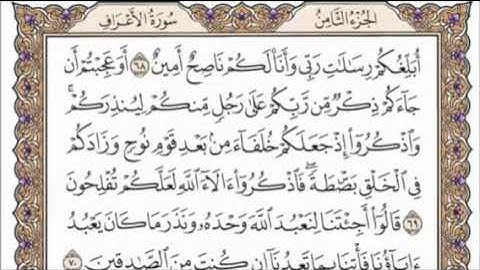 سُورَةُ الأَعْرَافِ الجُزْءُ الثَّامِنُ
أُبَلِّغُكُمْ رِسَٰلَٰتِ رَبِّي وَأَنَا۠ لَكُمْ نَاصِحٌ أَمِينٌ ٦٨ أَوَعَجِبْتُمْ أَن
جَآءَكُمْ ذِكْرٌ مِّن رَّبِّكُمْ عَلَىٰ رَجُلٍ مِّنكُمْ لِيُنذِرَكُمْ ۚ
وَٱذْكُرُوٓا۟ إِذْ جَعَلَكُمْ خُلَفَآءَ مِنۢ بَعْدِ قَوْمِ نُوحٍ وَزَادَكُمْ
فِي ٱلْخَلْقِ بَصْۜطَةً ۖ فَٱذْكُرُوٓا۟ ءَالَآءَ ٱللَّهِ لَعَلَّكُمْ تُفْلِحُونَ
٦٩ قَالُوٓا۟ أَجِئْتَنَا لِنَعْبُدَ ٱللَّهَ وَحْدَهُۥ وَنَذَرَ مَا كَانَ يَعْبُدُ
ءَابَآؤُنَا فَأْتِنَا بِمَا تَعِدُنَآ إِن كُنتَ مِنَ ٱلصَّٰدِقِينَ ٧٠